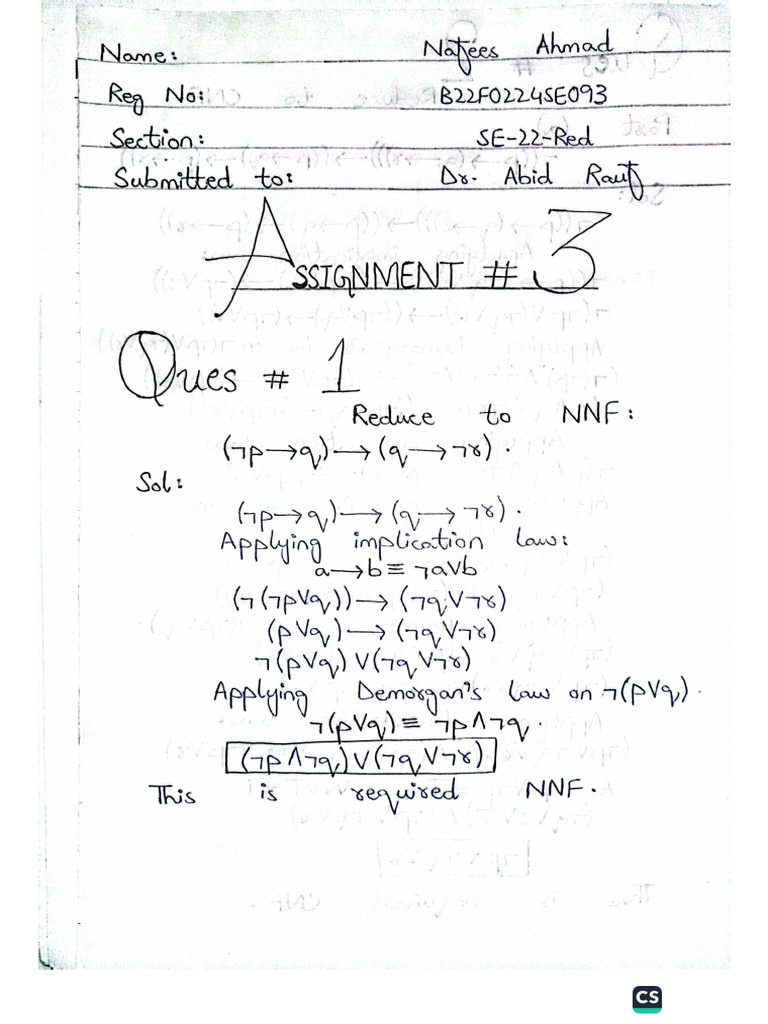 Name: Nafees Ahmad
Reg No: B22F0224SE093
Section: SE-22-Red
Submitted to: Dr. Abid Rauf
ASSIGNMENT # 3
Ques # 1
Reduce to NNF:
(¬p→q)→(q→¬r).
Sol:
(¬p→q)→(q→¬r).
Applying implication law:
a→b≡¬a∨b
(¬(¬p∨q))→(¬q∨¬r)
(p∨q)→(¬q∨¬r)
¬(p∨q)∨(¬q∨¬r)
Applying Demorgan's Law on ¬(p∨q).
¬(p∨q)≡¬p∧¬q.
(¬p∧¬q)∨(¬q∨¬r)
This is required NNF.
CS